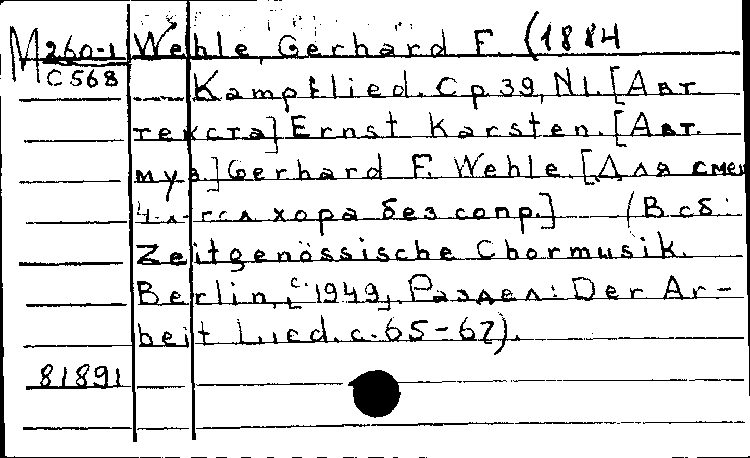 M 260-1 Wehle, Gerhard F. (1884
C 568 Kampflied. Op 39, N1. [Авт
текста] Ernst Karsten. [Авт.
муз.] Gerhard F. Wehle. [Для смеш
4х-гол хора без сопр.] (В сб:
Zeitgenössische Chormusik.
Berlin, [с. 1949]. Раздел: Der Ar-
beit Lied. с. 65-67).
81891